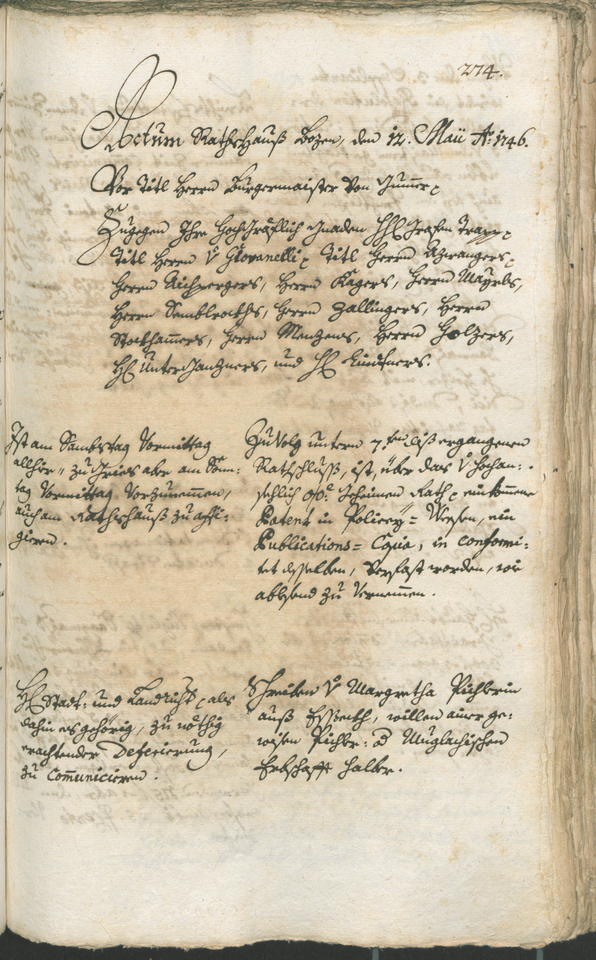 274.
Actum Rathshauß Bozen, den 12. Maii Aō. 1746.
Vor Titl Herrn Burgermaister von Gummer
Zugegen Ihro Hochgräflich Gnaden Grafen Trapp
Titl Herrn v Giovanelli, Titl Herrn Azwangers
Herrn Aichpergers, Herrn Kagers, Herrn Mayrls,
Herrn Sembleroths, Herrn Zallingers, Herrn
Stockhamers, Herrn Menzens, Herrn Holzers,
H. Unterganzners, und H. Kindtners.
Ist am Sambstag Vormittag
allhier, zu Gries aber am Sonn-
tag Vormittag Vorzunemmen,
auch am Rathshauß zu affi-
gieren.
Zuvolg untern 7.ten diß ergangenen
Rathschluß, ist, über das v hochan-
sehlich Geheimen Rath einkommene
Patent in Policey-Weesen, ein
Publications-Copia, in conformi-
tet desselben, Verfast worden, wie
ablesend zu Vernemmen.
H. Stadt- und Landricht, als
dahin es gehörig, zu nöthig
erachtender Deferierung,
zu Communicieren.
Schreiben v Margretha Pichlerin
auß, willen ainer ge-
wisen Pichler- Muglachischen
Erbschafft halber.